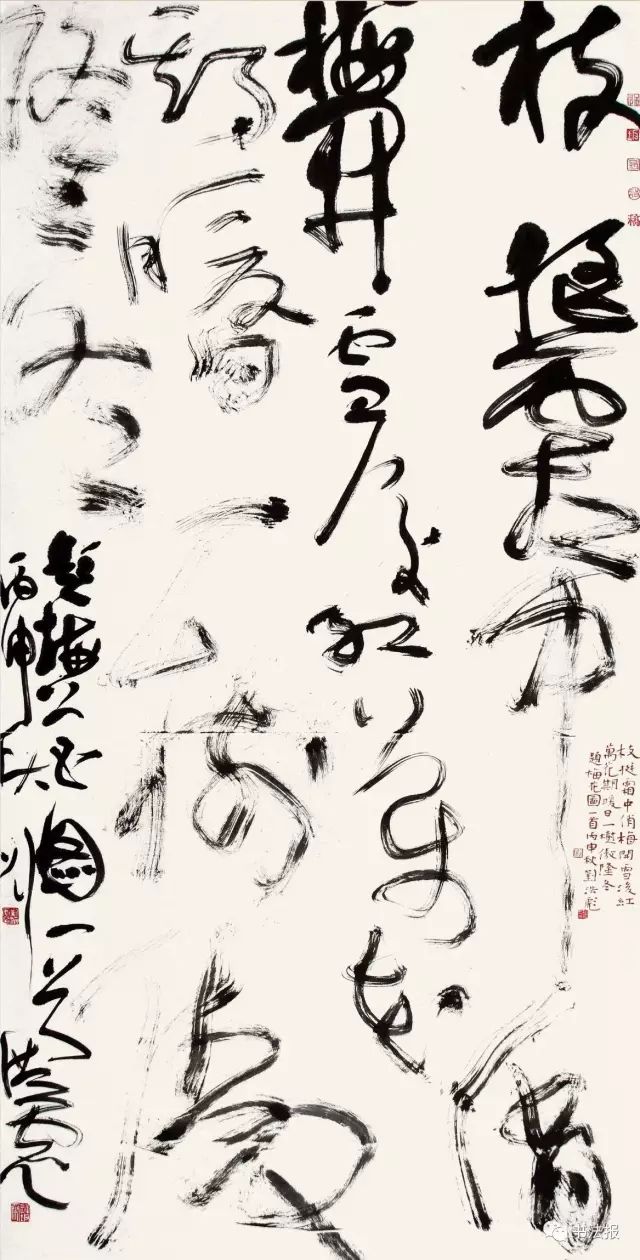 枝挺霜中俏
梅開雪後紅萬花
期暖日一樹傲
隆冬
題梅花圖一首洪彪
丙申秋
枝挺霜中俏梅開雪後紅
萬花期暖日一樹傲隆冬
題梅花圖一首丙申秋劉洪彪
书法报